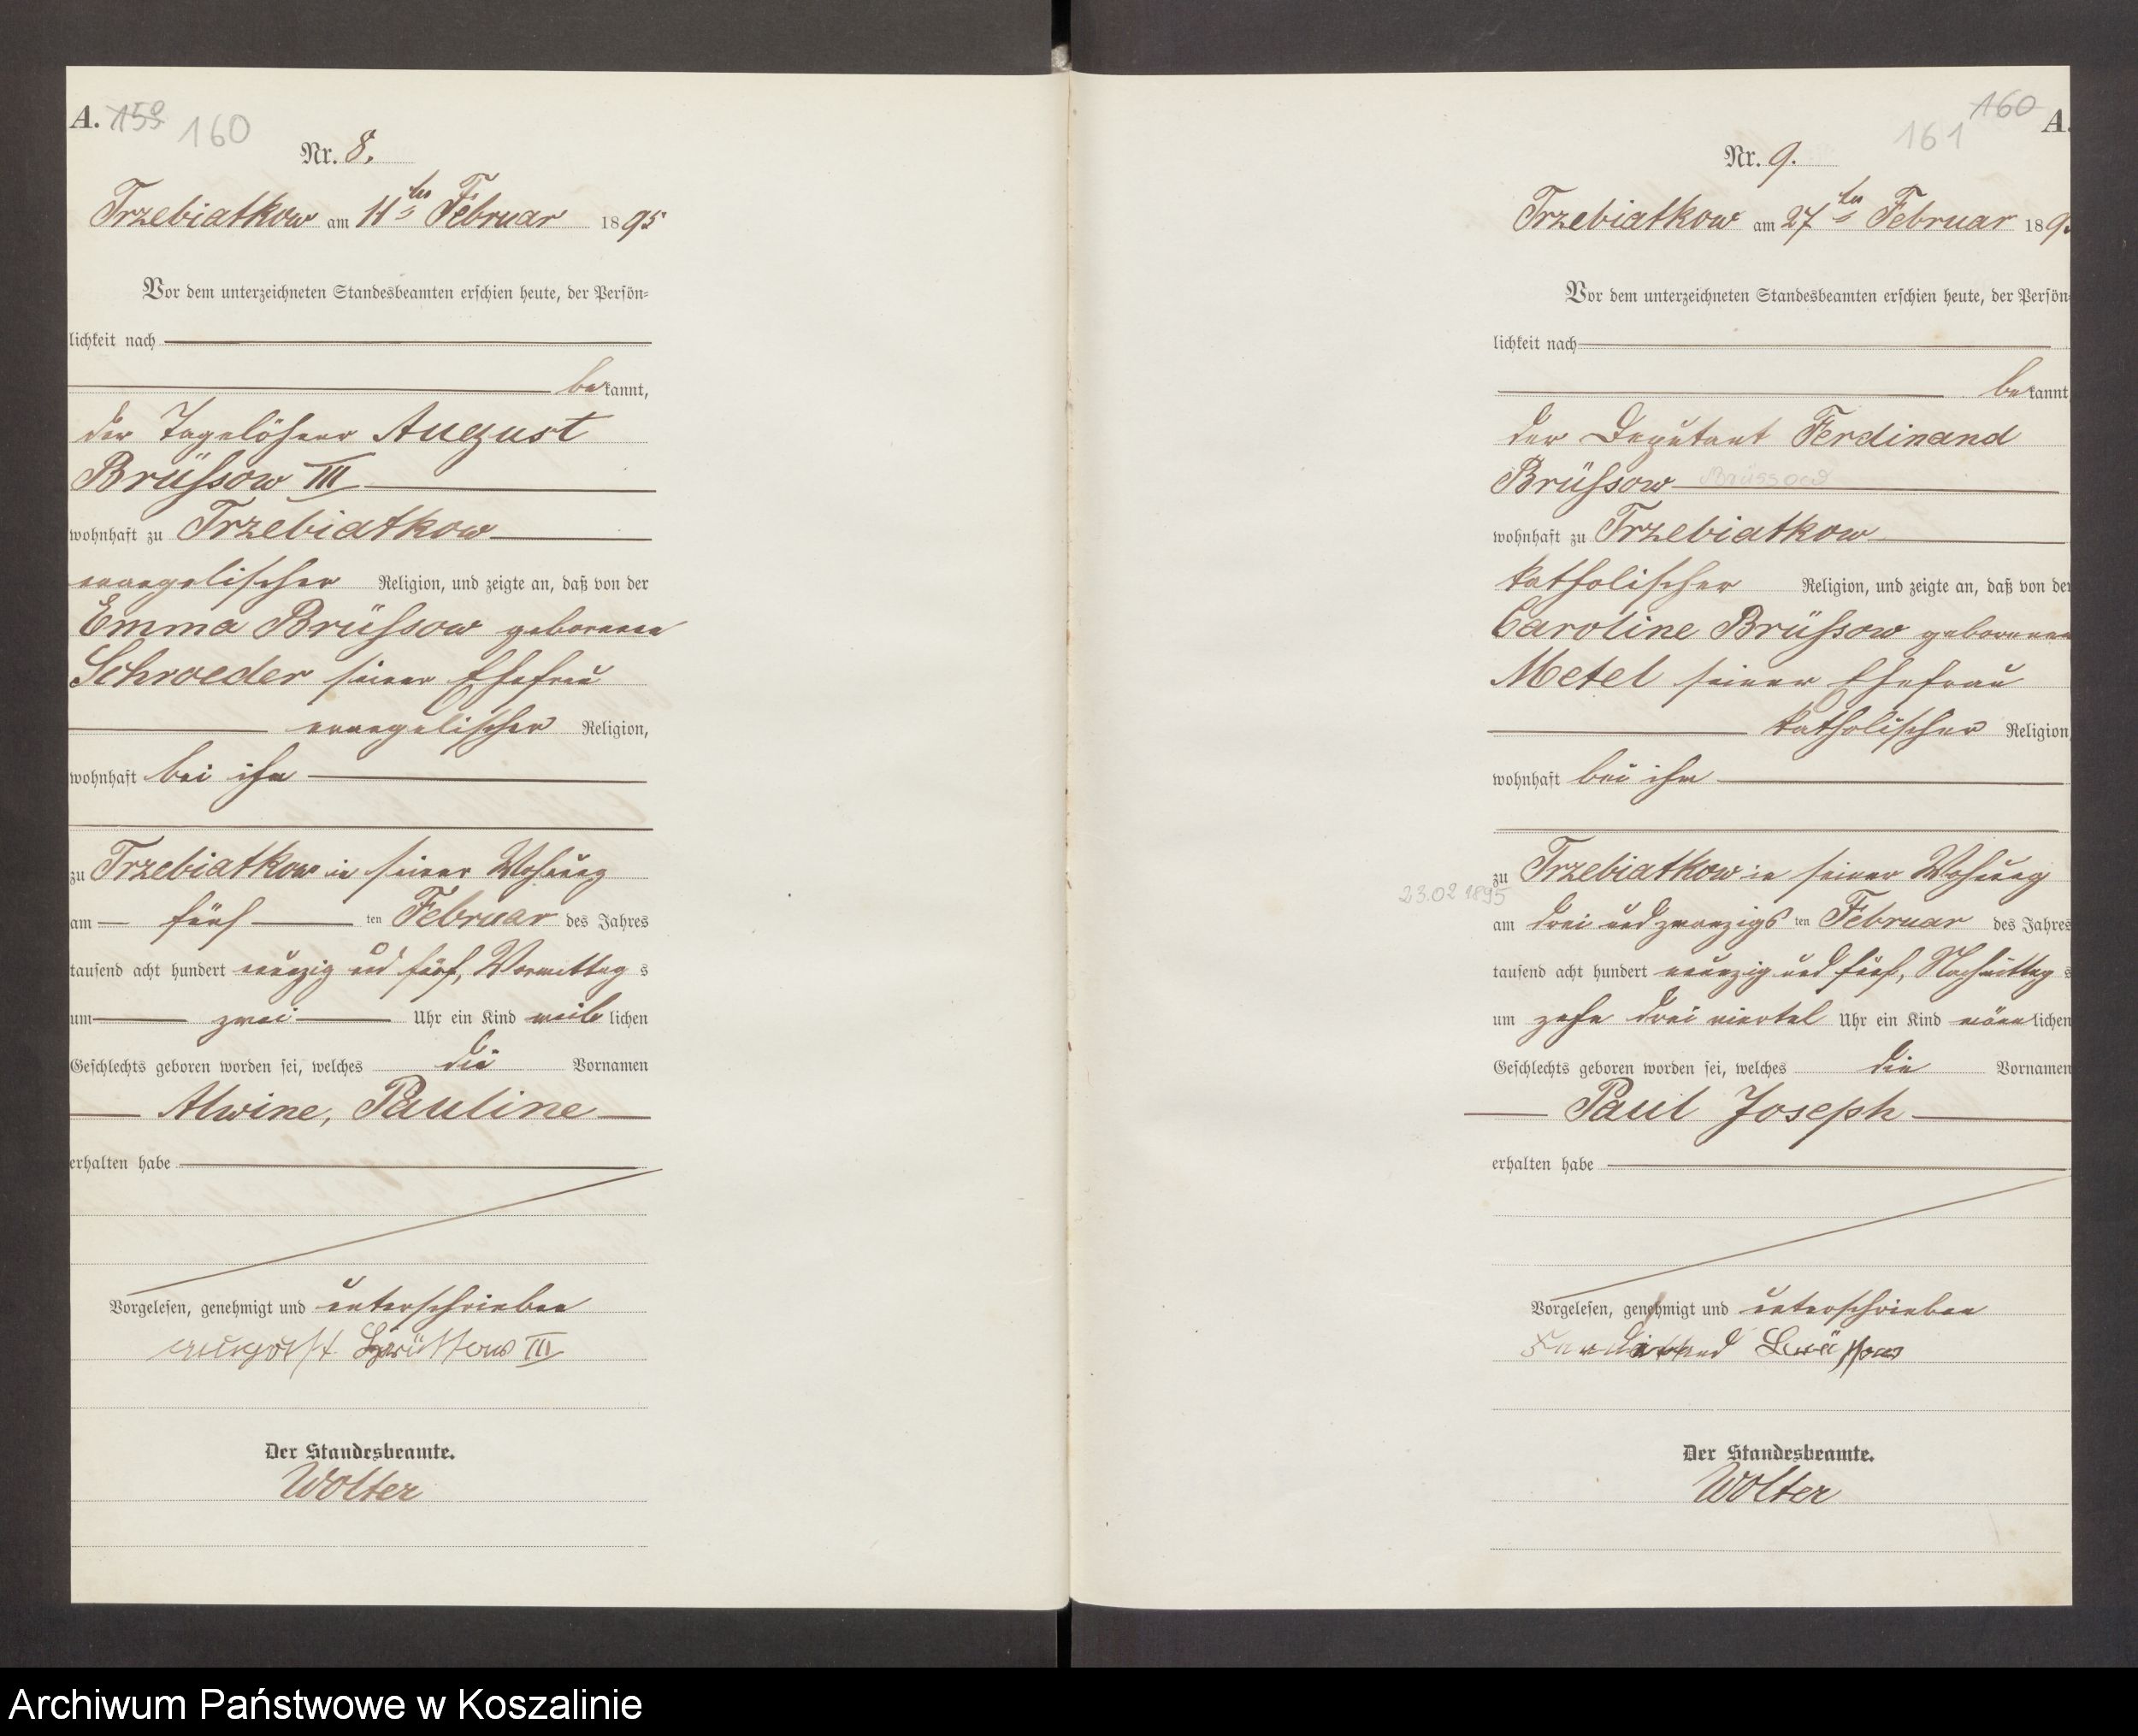 A. 159 160
Nr. 8.
Trzebiatkow am 11ten Februar 1895
Vor dem unterzeichneten Standesbeamten erschien heute, der Persön=
lichkeit nach
bekannt,
der Tagelöhner August
Brüssow III
wohnhaft zu Trzebiatkow
evangelischer Religion, und zeigte an, daß von der
Emma Brüssow geborenen
Schroeder seiner Ehefrau
evangelischer Religion,
wohnhaft bei ihm
zu Trzebiatkow in seiner Wohnung
am fünf ten Februar des Jahres
tausend acht hundert neunzig und fünf, Vormittag s
um zwei Uhr ein Kind weib lichen
Geschlechts geboren worden sei, welches die Vornamen
Alwine, Pauline
erhalten habe
Vorgelesen, genehmigt und unterschrieben
August Brüssow III
Der Standesbeamte.
Wolter
160 A.
161
Nr. 9.
Trzebiatkow am 27ten Februar 189
Vor dem unterzeichneten Standesbeamten erschien heute, der Persön=
lichkeit nach
bekannt
der Deputant Ferdinand
Brüssow Brüssow
wohnhaft zu Trzebiatkow
katholischer Religion, und zeigte an, daß von der
Caroline Brüssow geborenen
Metel seiner Ehefrau
katholischer Religion
wohnhaft bei ihm
zu Trzebiatkow in seiner Wohnung
23.02 1895
am drei und zwanzigs ten Februar des Jahres
tausend acht hundert neunzig und fünf, Nachmittag s
um zehn drei viertel Uhr ein Kind männ lichen
Geschlechts geboren worden sei, welches die Vornamen
Paul Joseph
erhalten habe
Vorgelesen, genehmigt und unterschrieben
Ferdinand Brüssow
Der Standesbeamte.
Wolter
Archiwum Państwowe w Koszalinie